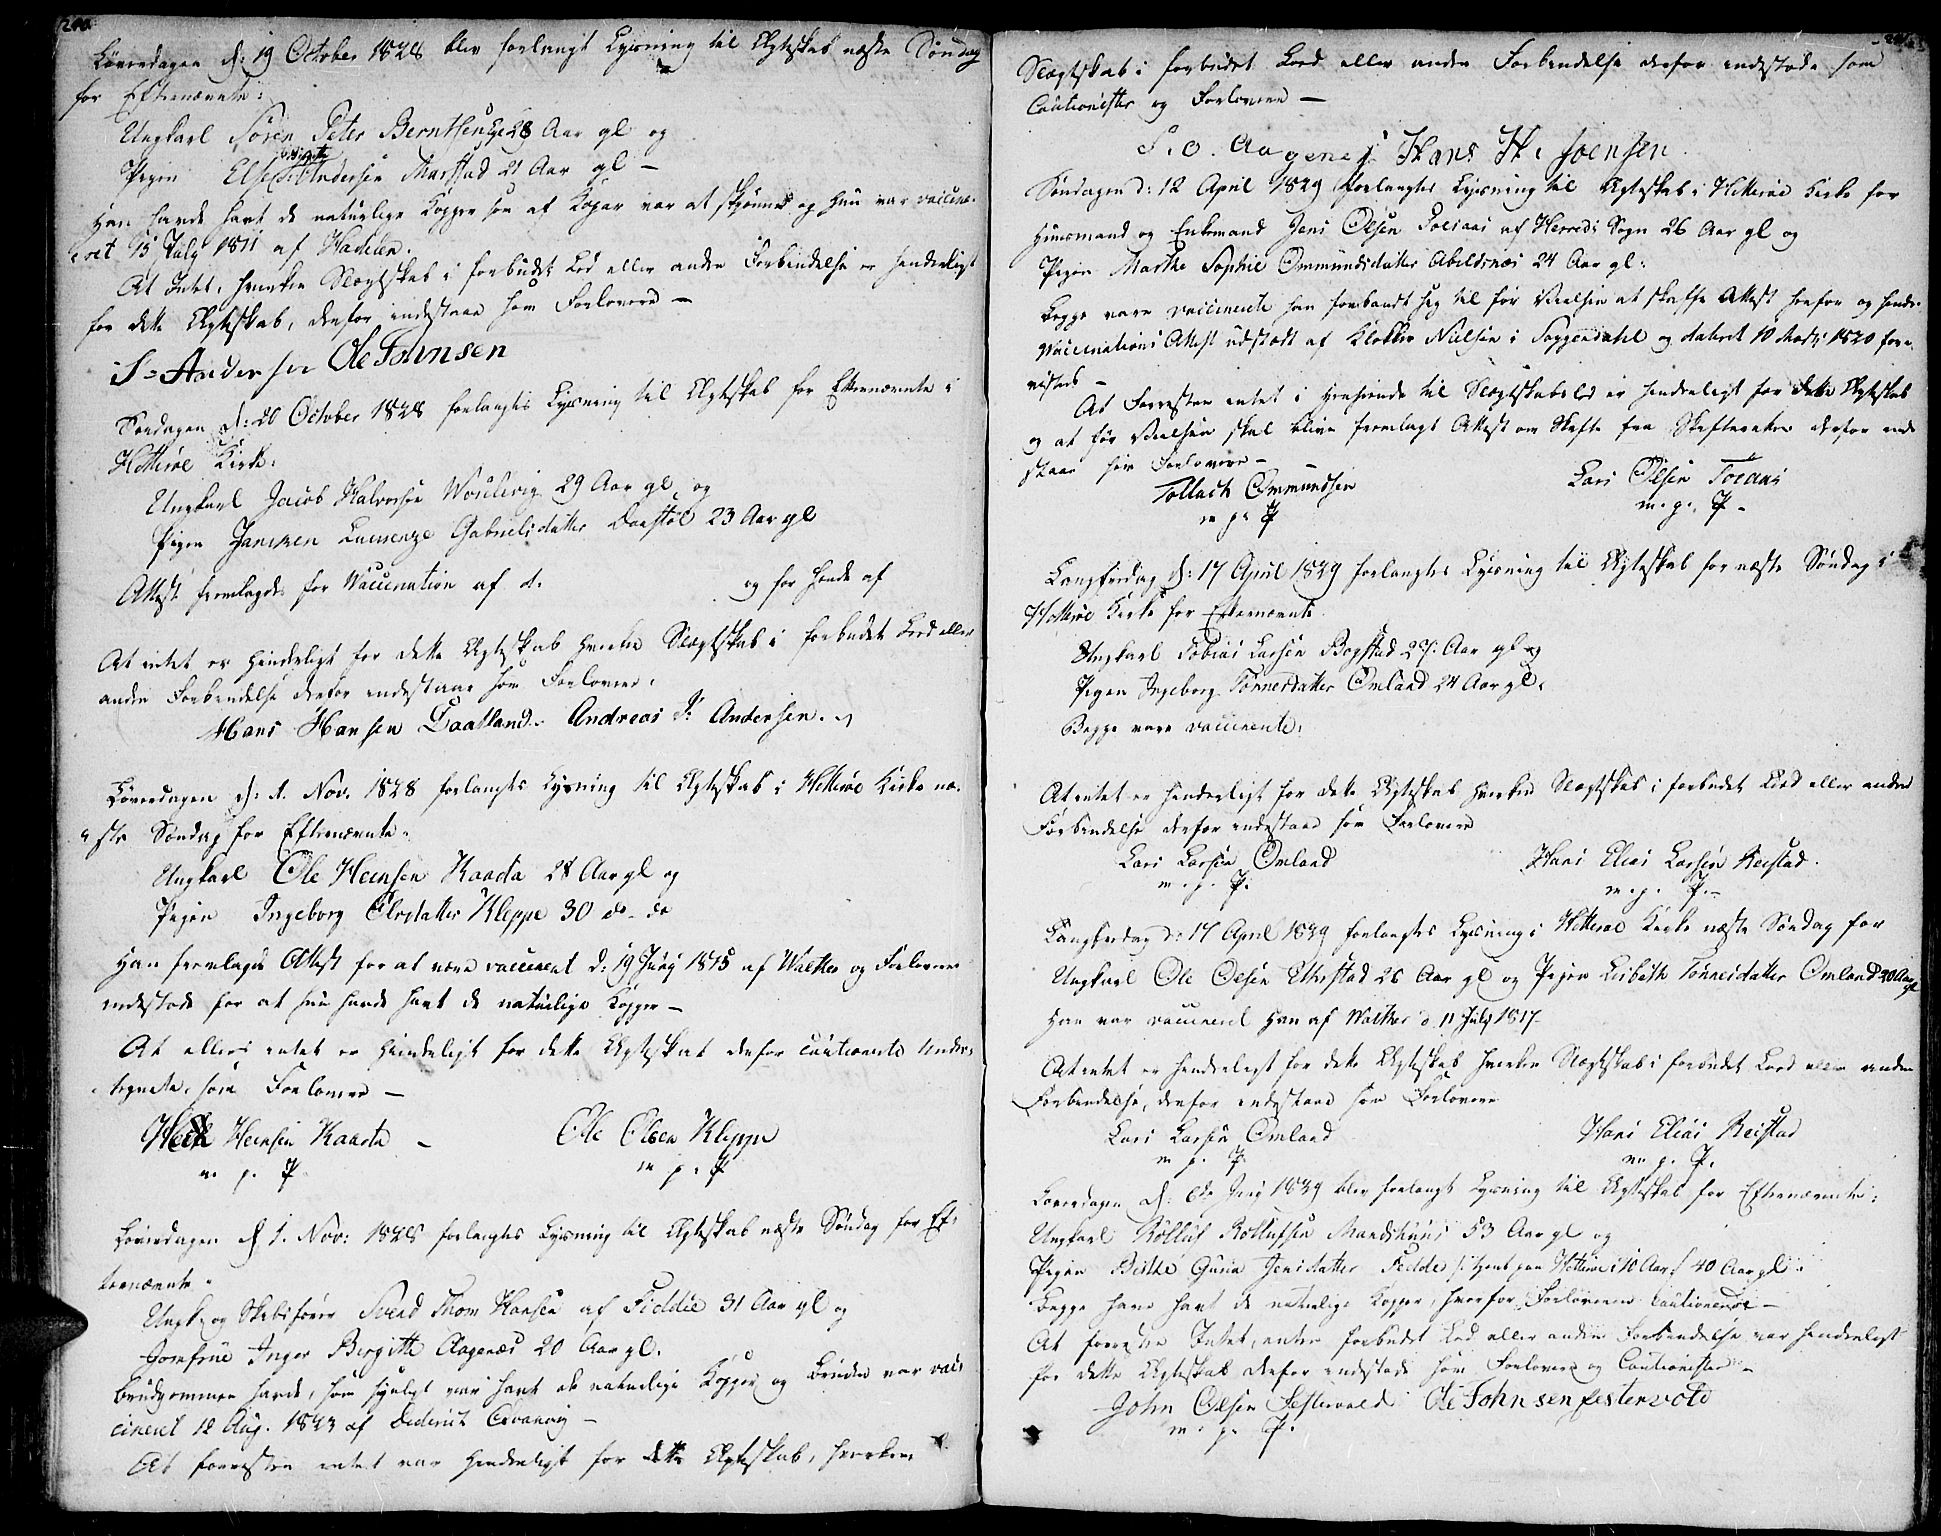 200.
Løverdagen d: 19 October 1828 blev forlangt Lysning til Ægteskab næste Søndag
for Efternævnte:
Ungkarl Sören Peter Bernthsen 28 Aar gl og
Pigen Else Birgitte Andersen Marstad 21 Aar gl —
Han havde havt de naturlige Kopper som af Kopar var at skjønne og hun var vaccine-
ret 15 July 1811 af
At Intet, hverken Slægtskab i forbudet Led eller anden Forbindelse er hinderligt
for dette Ægteskab, derfor indestaae som Forlovere —
S=Andersen Ole Johnsen
Søndagen d: 20 October 1828 forlangtes Lysning til Ægteskab for Efternævnte i
Hitterøe Kirke:
Ungkarl Jacob Halvorsen 29 Aar gl og
Pigen Laurenze Gabrielsdatter 23 Aar gl
Attest fremlagdes for Vaccination af d. og for hende af
At intet er hinderligt for dette Ægteskab hverken Slægtskab i forbudet Led eller
anden Forbindelse derfor indestaae som Forlovere.
Hans Hansen Daatland. Andreas P. Andersen.
Løverdagen d: 1. Nov. 1828 forlangtes Lysning til Ægteskab i Hitterøe Kirke næ-
ste Søndag for Efternævnte.
Ungkarl Ole Heinsen Raada 28 Aar gl og
Pigen Ingeborg Olsdatter Kleppe 30 do do
Han fremlagde Attest for at være vaccineret d: 19 Juny 1815 af Walther og Forlovere
indestode for at hun havde havt de naturlige Kopper —
At ellers intet er hinderligt for dette Ægteskab derfor cautionerede Under-
tegnede, som Forlovere —
Heinsen Raada — Ole Olsen Kleppe
m. p. P. m. p. P.
Løverdagen d 1. Nov: 1828 forlangtes Lysning til Ægteskab næste Søndag for Ef-
ternævnte.
Ungk. og Skibsfører Svend Thom Hansen af Fedde 31 Aar gl og
Jomfrue Inger Birgitte Aagenæs 20 Aar gl.
Brudgommen havde, som synligt var havt de naturlige Kopper og Bruden var vac-
cineret 12 Aug. 1823 af
At forresten intet var hinderligt for dette Ægteskab, hverken
Slægtskab i forbudet Leed eller anden Forbindelse derfor indestode som
Cautionister og Forlovere —
S. O. Aagenes. Hans H. Joensen.
Søndagen d: 12 April 1829 forlangtes Lysning til Ægteskab i Hitterøe Kirke for
Huusmand og Enkemand Jens Olsen af Herreds Sogn 26 Aar gl og
Pigen Marthe Sophie Ommundsdatter Abildsnæs 24 Aar gl.
Begge vare vaccinerede han forbandt sig til før Vielsen at skaffe Attest herfor og hendes
Vaccinations Attest udstædt af Klokker Nielsen i Soggendahl og dateret 10 1820 fore-
vistes —
At Forresten intet i Henseende til Slægtskabsled er hinderligt for dette Ægteskab
og at før Vielsen skal blive fremlagt Attest om Skifte fra Skifteretten derfor inde
staae som Forlovere —
Tollach Ommundsen Lars Olsen
m. p. P. m. p. P.
Langfredag d: 17 April 1829 forlangtes Lysning til Ægteskab for næste Søndag i
Hitterøe Kirke for Efternævnte
Ungkarl Tobias Larsen Bogstad 27 Aar gl og
Pigen Ingeborg Tønnesdatter Omland 24 Aar gl.
Begge vare vaccinerede.
At intet er hinderligt for dette Ægteskab hverken Slægtskab i forbudet Led eller anden
Forbindelse derfor indestaae som Forlovere
Lars Larsen Omland Hans Elias Larsen Reistad.
m. p. P. m. p. P.
Langfredag d: 17 April 1829 forlangtes Lysning i Hitterøe Kirke næste Søndag for
Ungkarl Ole Olsen Etherstad 26 Aar gl og Pigen Lisbeth Tønnesdatter Omland 20 Aar gl
Han var vaccineret Han af Walther d. 11 July 1817
At intet er hinderligt for dette Ægteskab hverken Slægtskab i forbudet Leed eller anden
Forbindelse, derfor indestaae som Forlovere
Lars Larsen Omland Hans Elias Reistad
m. p. P. m. p. P.
Løverdagen d: 6te Juny 1829 blev forlangt Lysning til Ægteskab for Efternævnte:
Ungkarl Rolluf Rollufsen 53 Aar gl og
Pigen Berthe Guria Jensdatter Fedde /: tjent paa Hitterøe i 10 Aar :/ 40 Aar gl.
Begge have havt de naturlige Kopper, hvorfor Forloverne Cautionerede —
At forresten Intet, enten forbudet Led eller anden Forbindelse var hinderligt
for dette Ægteskab derfor indestode som Forlovere og Cautionister —
John Olsen Festervold Ole Johnsen festervold
m. p. P.